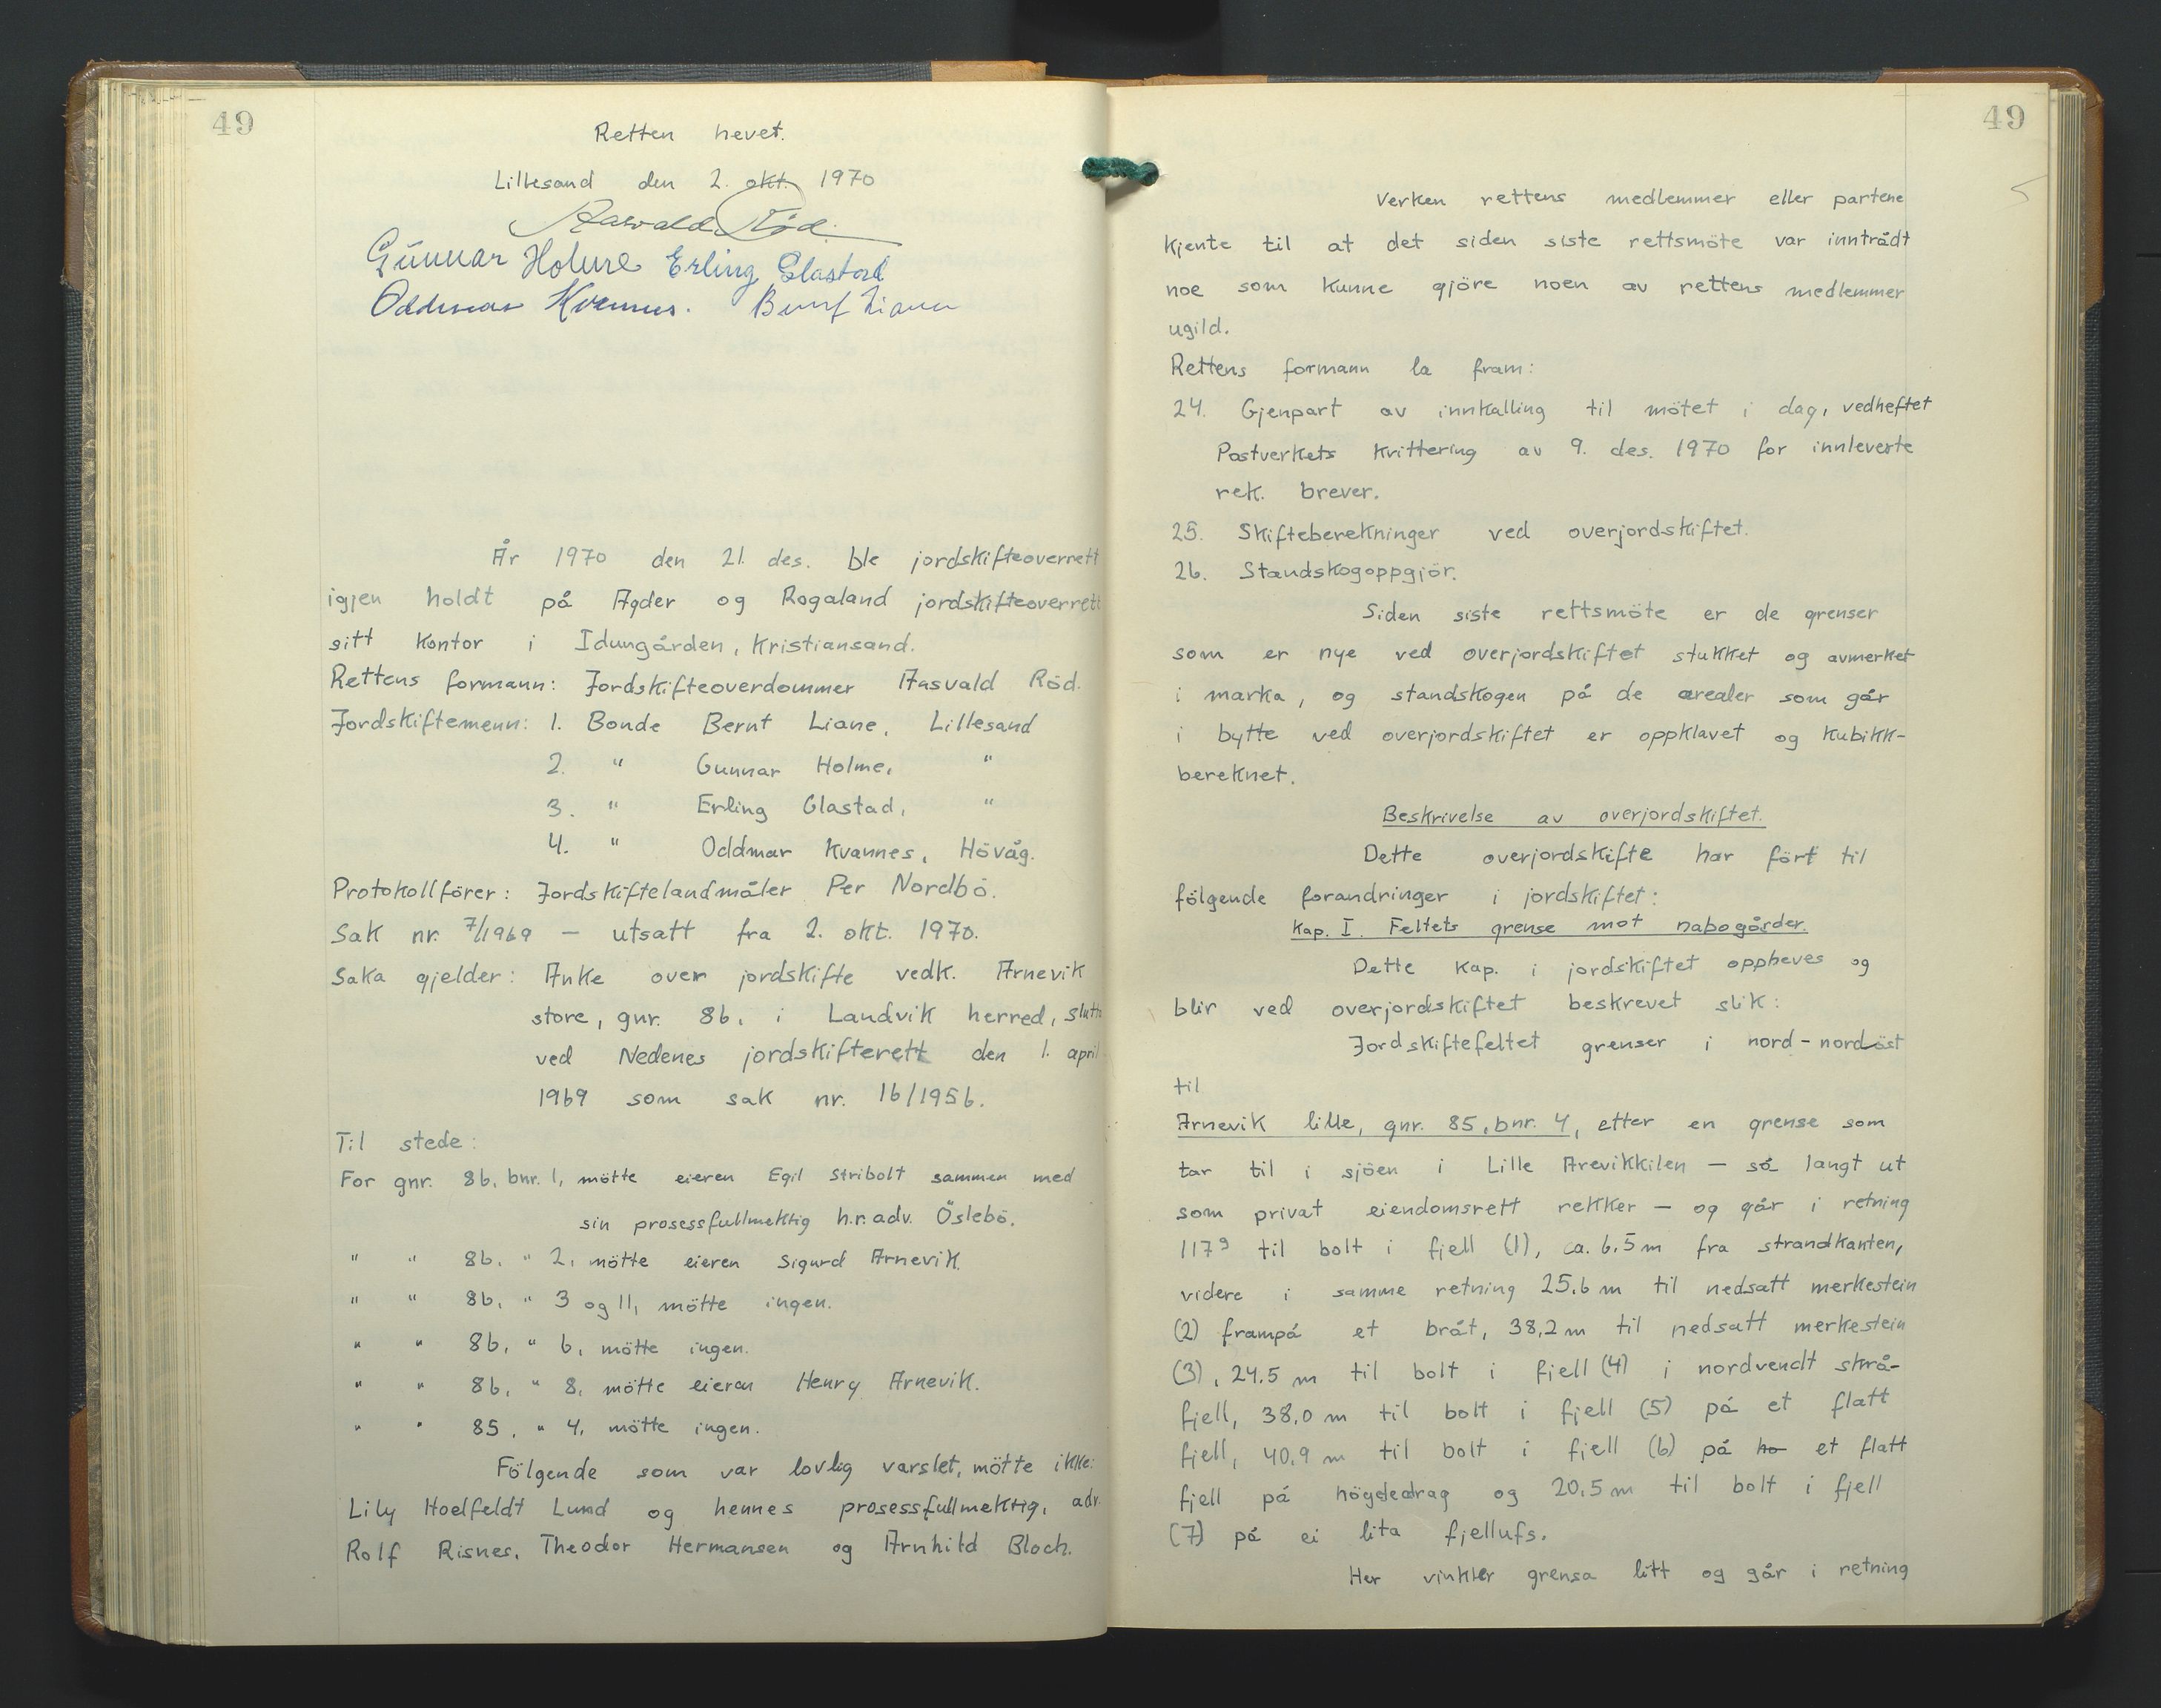 49
Retten hevet.
Lillesand den 2. okt. 1970
Aasvald Röd.
Gunnar Holme Erling Glastad
Oddmar Kvannes. Bernt Liane
År 1970 den 21. des. ble jordskifteoverrett
igjen holdt på Agder og Rogaland jordskifteoverrett
sitt kontor i Idungården, Kristiansand.
Rettens formann: Jordskifteoverdommer Aasvald Röd.
Jordskiftemenn: 1. Bonde Bernt Liane, Lillesand
2. " Gunnar Holme, "
3. " Erling Glastad, "
4. " Oddmar Kvannes, Hövåg.
Protokollförer: Jordskiftelandmåler Per Nordbö.
Sak nr. 7/1969 – utsatt fra 2. okt. 1970.
Saka gjelder: Anke over jordskifte vedk. Arnevik
store, gnr. 86, i Landvik herred, slutt
ved Nedenes jordskifterett den 1. april
1969 som sak nr. 16/1956.
Til stede:
For gnr. 86, bnr. 1, mötte eieren Egil Stribolt sammen med
sin prosessfullmektig h.r.adv. Öslebö.
" " 86, " 2, mötte eieren Sigurd Arnevik.
" " 86, " 3 og 11, mötte ingen.
" " 86, " 6, mötte ingen.
" " 86, " 8, mötte eieren Henry Arnevik.
" " 85, " 4, mötte ingen.
Fölgende som var lovlig varslet, mötte ikke:
Lily Hoelfeldt Lund og hennes prosessfullmektig, adv.
Rolf Risnes, Theodor Hermansen og Arnhild Bloch.
49
Verken rettens medlemmer eller partene
kjente til at det siden siste rettsmöte var inntrådt
noe som kunne gjöre noen av rettens medlemmer
ugild.
Rettens formann la fram:
24. Gjenpart av innkalling til mötet i dag, vedheftet
Postverkets kvittering av 9. des. 1970 for innleverte
rek. brever.
25. Skifteberekninger ved overjordskiftet.
26. Standskogoppgjör.
Siden siste rettsmöte er de grenser
som er nye ved overjordskiftet stukket og avmerket
i marka, og standskogen på de arealer som går
i bytte ved overjordskiftet er oppklavet og kubikk-
bereknet.
Beskrivelse av overjordskiftet.
Dette overjordskifte har fört til
fölgende forandringer i jordskiftet:
Kap. I. Feltets grense mot nabogårder.
Dette kap. i jordskiftet oppheves og
blir ved overjordskiftet beskrevet slik:
Jordskiftefeltet grenser i nord-nordöst
til
Arnevik lille, gnr. 85, bnr. 4, etter en grense som
tar til i sjöen i Lille Arevikkilen – så langt ut
som privat eiendomsrett rekker – og går i retning
117g til bolt i fjell (1), ca. 6,5 m fra strandkanten,
videre i samme retning 25,6 m til nedsatt merkestein
(2) frampå et bråt, 38,2 m til nedsatt merkestein
(3), 24,5 m til bolt i fjell (4) i nordvendt skrå-
fjell, 38,0 m til bolt i fjell (5) på et flatt
fjell, 40,9 m til bolt i fjell (6) på ho et flatt
fjell på högdedrag og 20,5 m til bolt i fjell
(7) på ei lita fjellufs.
Her vinkler grensa litt og går i retning